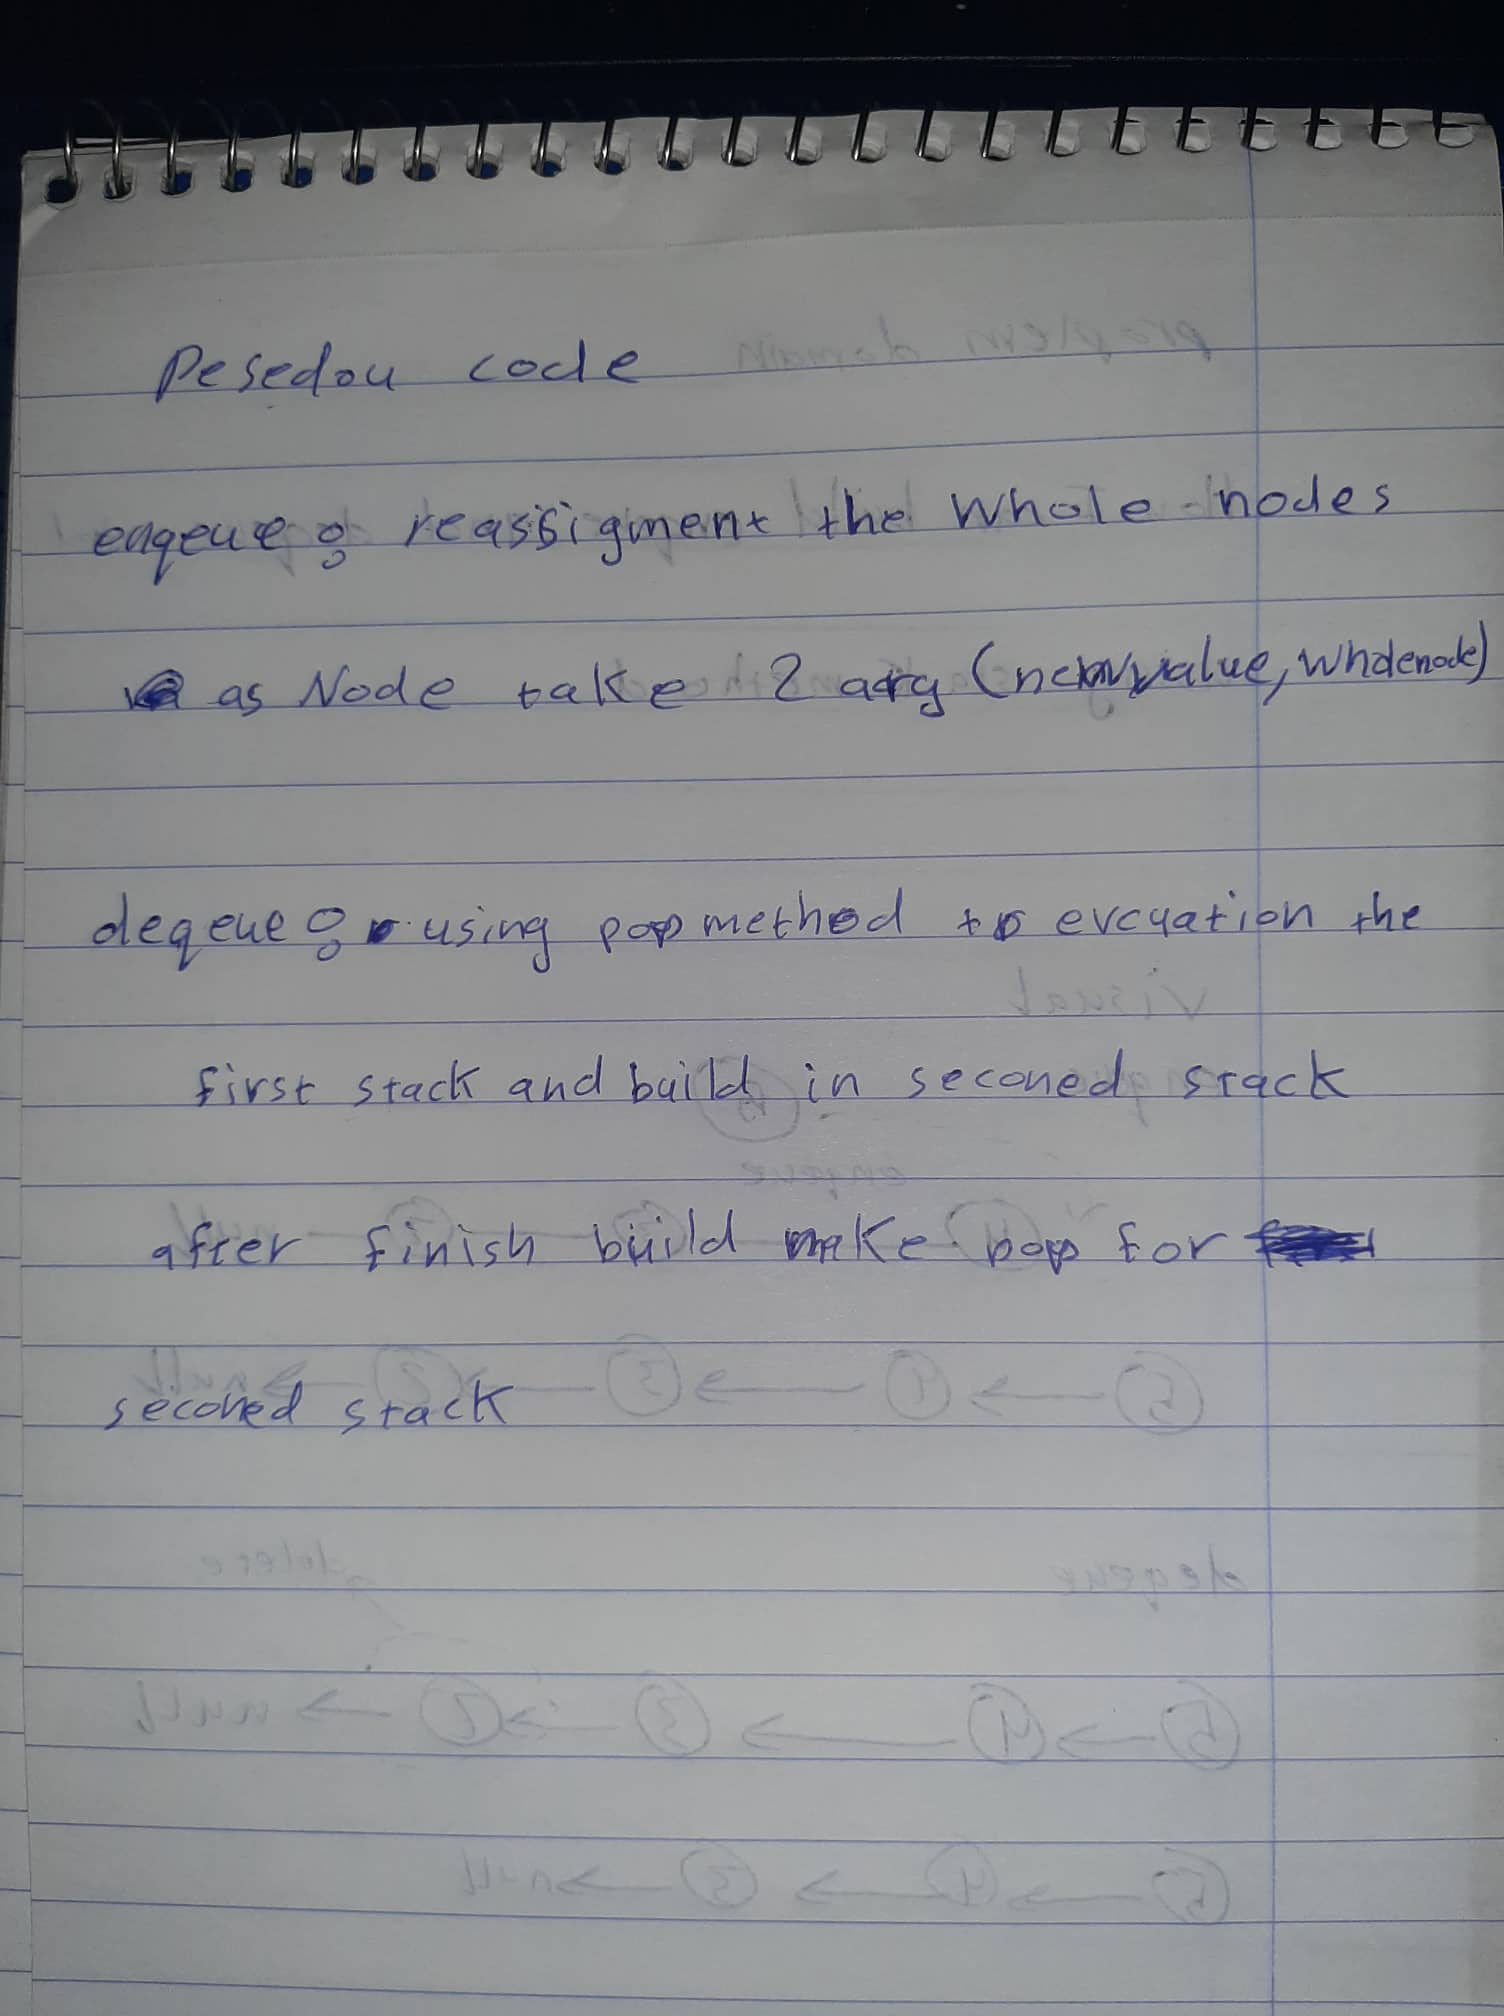 Pesedou code
enqeue : reassigment the whole nodes
as Node take 2 arg (newvalue, wholenode)
deqeue : using pop method to evcuation the
first stack and build in seconed stack
after finish build make pop for
seconed stack